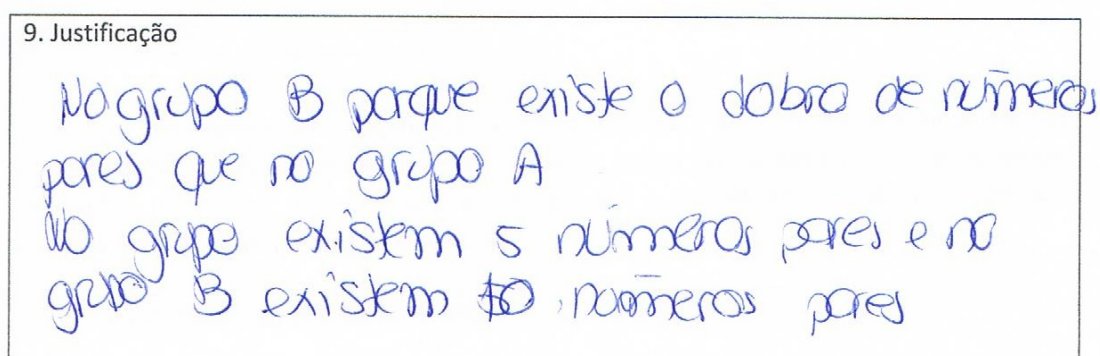 9. Justificação
No grupo B porque existe o dobro de números
pares que no grupo A
No grupo existem 5 números pares e no
grupo B existem 10 números pares